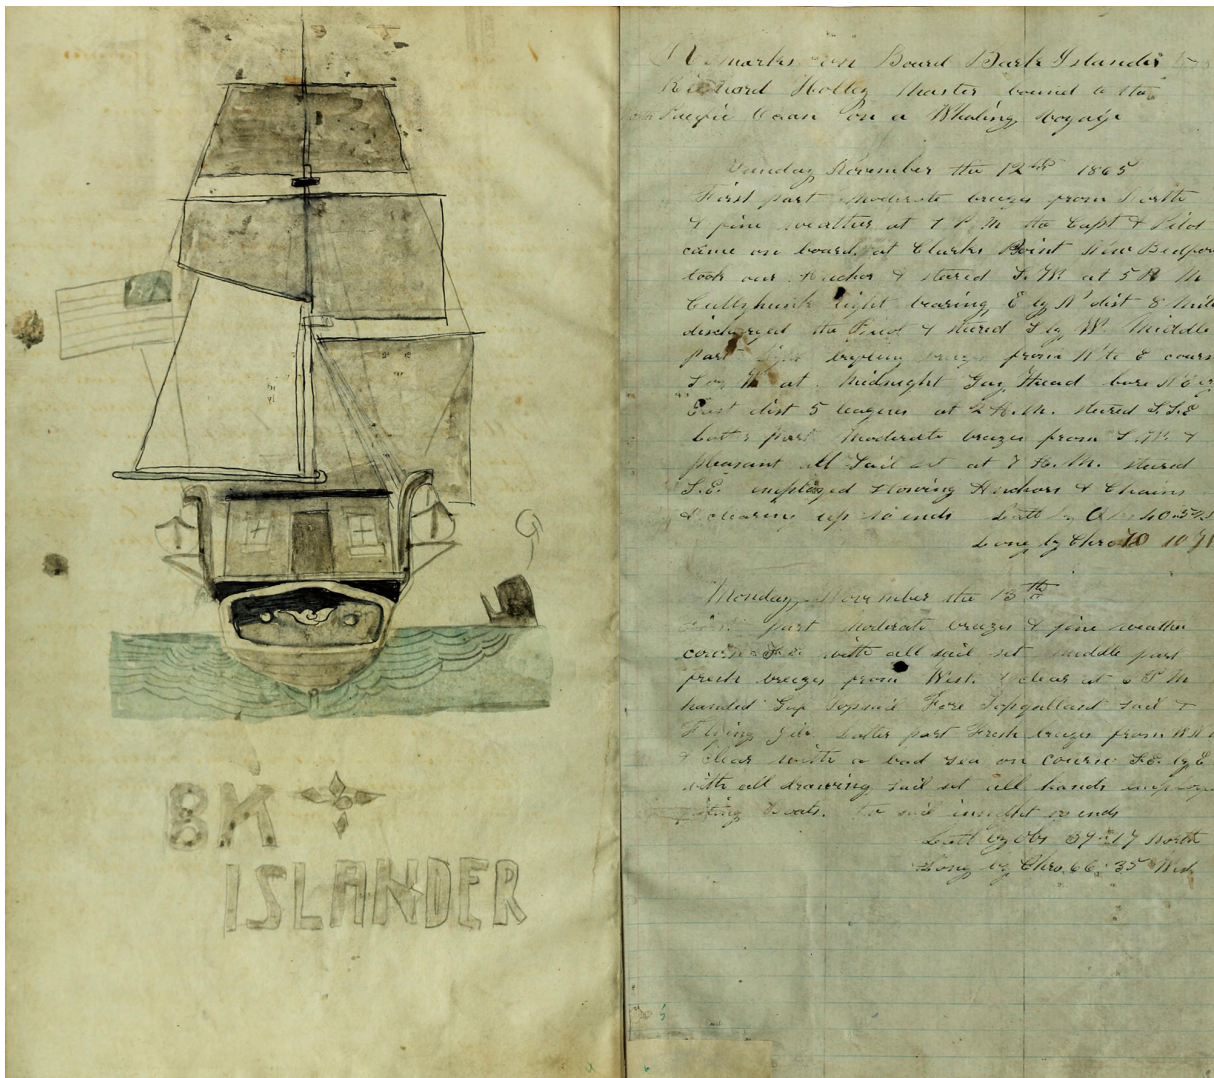 BK
ISLANDER
Remarks on Board Bark Islander
Richard Holley Master bound to the
Pacific Ocean on a Whaling voyage
Sunday November the 12th 1865
First part moderate breezes from North
& fine weather at 1 P.M the Capt & Pilot
came on board. at Clarks Point New Bedfor
took our Anchor & stared S.W. at 5 P M
Cuttyhunk light bearing E by N dist 8 Mile
discharged the & stared S by W. Middle
part light from N to E cours
S by W at Midnight Gay Head bore N E
East dist 5 leagues at 2 A.M. stared S.S.E
latter part Moderate breezes from &
pleasant all Sail set at 7 A.M. stared
S.E. employed stowing Anchors & Chains
& clearing up so ends Latt by Obs 40.52
Long by Chro 70 10
Monday, November the 13th
First part moderate breezes & fine weather
course S.E. with all sail set middle part
fresh breezes from West. & clear at 6 P.M
handed Gaf Topsail Fore Topgallant sail &
Flying Jib. Latter part Fresh breezes from
& clear with a bad sea on course S.E. by E
with all drawing sail set all hands employ
fixing boats. no sail insight so ends
Latt by Obs 39=17 North
Long by Chro. 66:35 West